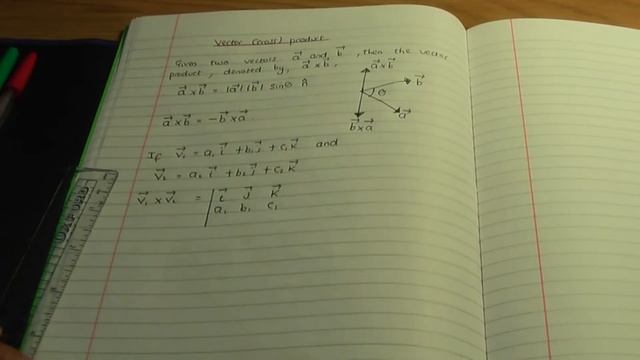 Vector (cross) product
Given two vectors a⃗ and b⃗, then the vector
product, denoted by, a⃗ x b⃗,
a⃗ x b⃗ = |a⃗| |b⃗| sinθ n̂
a⃗ x b⃗ = -b⃗ x a⃗.
a⃗ x b⃗
b⃗
θ
a⃗
b⃗ x a⃗
If V⃗₁ = a₁ i⃗ + b₁ j⃗ + c₁ k⃗ and
V⃗₂ = a₂ i⃗ + b₂ j⃗ + c₂ k⃗
V⃗₁ x V⃗₂ = | i⃗ j⃗ k⃗
a₁ b₁ c₁
OXFORD